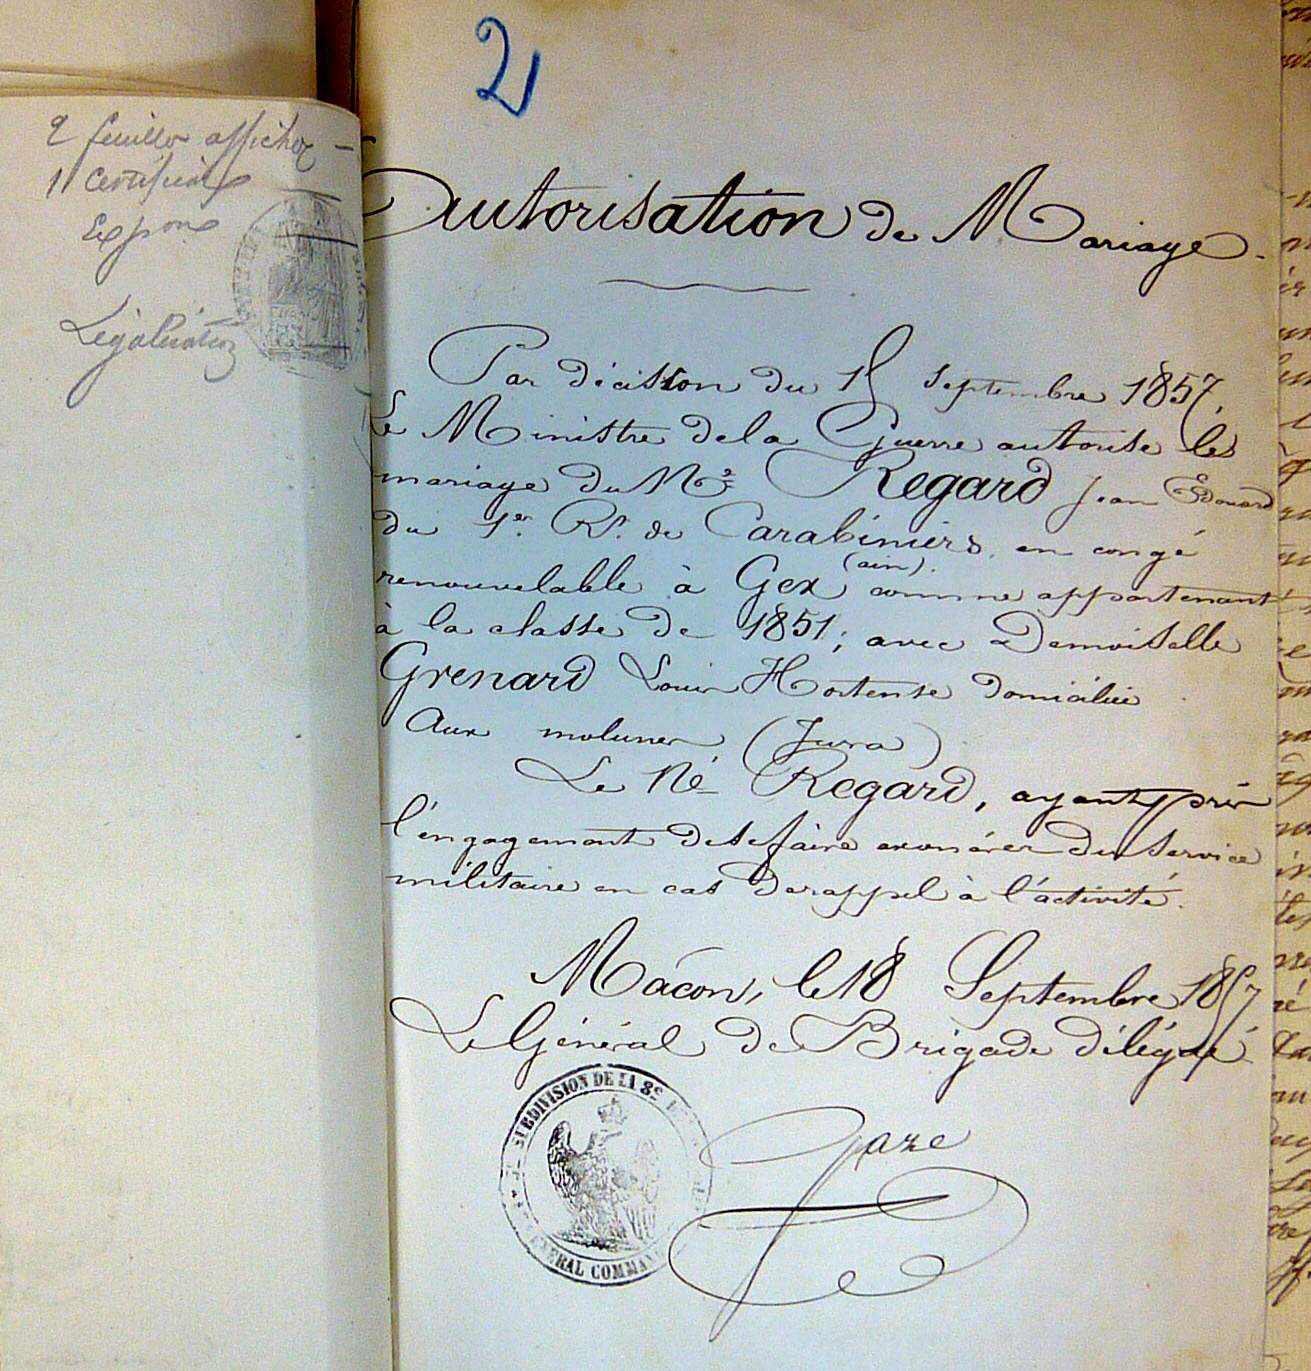 2
2 feuilles affiches —
1 Certificat
Exp
Légalisation
Autorisation de Mariage.
Par décision du 15 Septembre 1857,
Le Ministre de la Guerre autorise le
mariage du Né Regard Jean Edouard
du 1er Rt. de Carabiniers, en congé
renouvelable à Gex (ain). comme appartenant
à la classe de 1851; avec Demoiselle
Grenard Louise Hortense domiciliée
Aux molunes (Jura)
Le Né Regard, ayant pris
l'engagement de se faire exonérer du service
militaire en cas de rappel à l'activité.
Mâcon, le 18 Septembre 1857
Le Général de Brigade délégué
SUBDIVISION DE LA 8E
GÉNÉRAL COMMAN